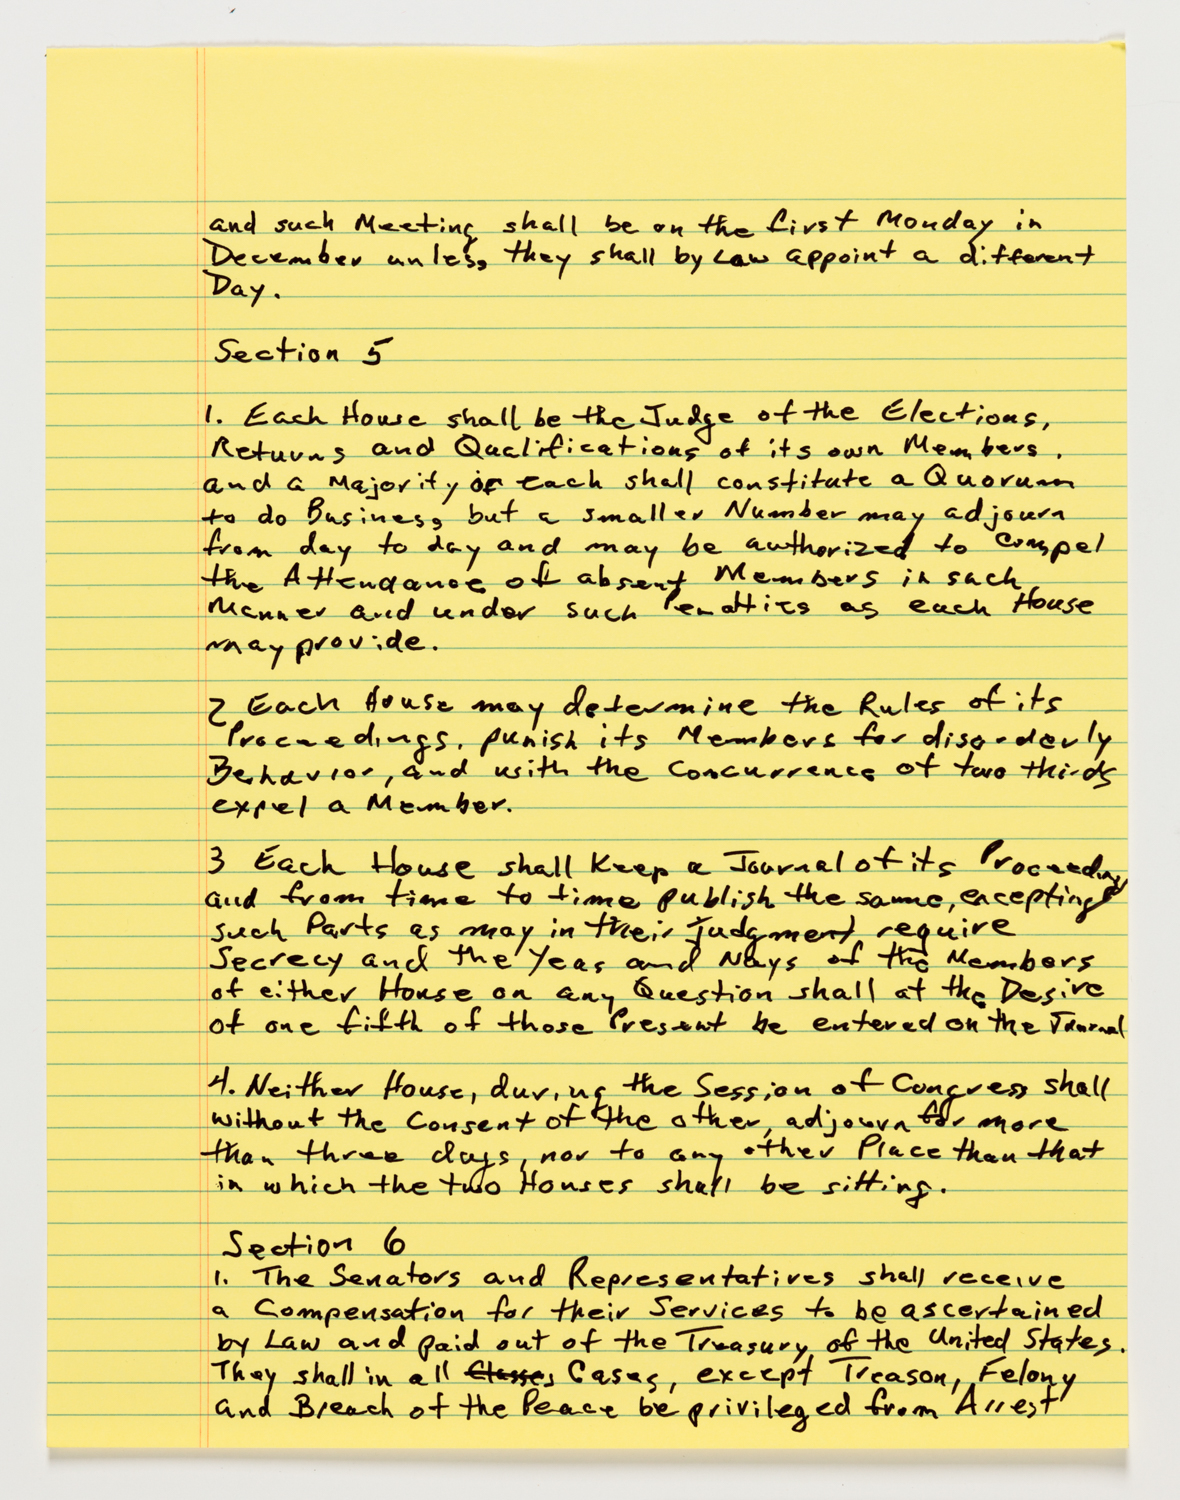 and such Meeting shall be on the first Monday in
December unless they shall by Law appoint a different
Day.
Section 5
1. Each House shall be the Judge of the Elections,
Returns and Qualifications of its own Members,
and a Majority of each shall constitute a Quorum
to do Business but a smaller Number may adjourn
from day to day and may be authorized to compel
the Attendance of absent Members in such
Manner and under such Penalties as each House
may provide.
2 Each House may determine the Rules of its
Proceedings, punish its Members for disorderly
Behavior, and with the Concurrence of two thirds
expel a Member.
3 Each House shall Keep a Journal of its Proceeding
and from time to time publish the same, excepting
such Parts as may in their judgment require
Secrecy and the Yeas and Nays of the Members
of either House on any Question shall at the Desire
of one fifth of those Present be entered on the Journal
4. Neither House, during the Session of Congress shall
without the Consent of the other, adjourn for more
than three days, nor to any other Place than that
in which the two Houses shall be sitting.
Section 6
1. The Senators and Representatives shall receive
a Compensation for their Services to be ascertained
by Law and paid out of the Treasury of the United States.
They shall in all Classes Cases, except Treason, Felony
and Breach of the Peace be privileged from Arrest